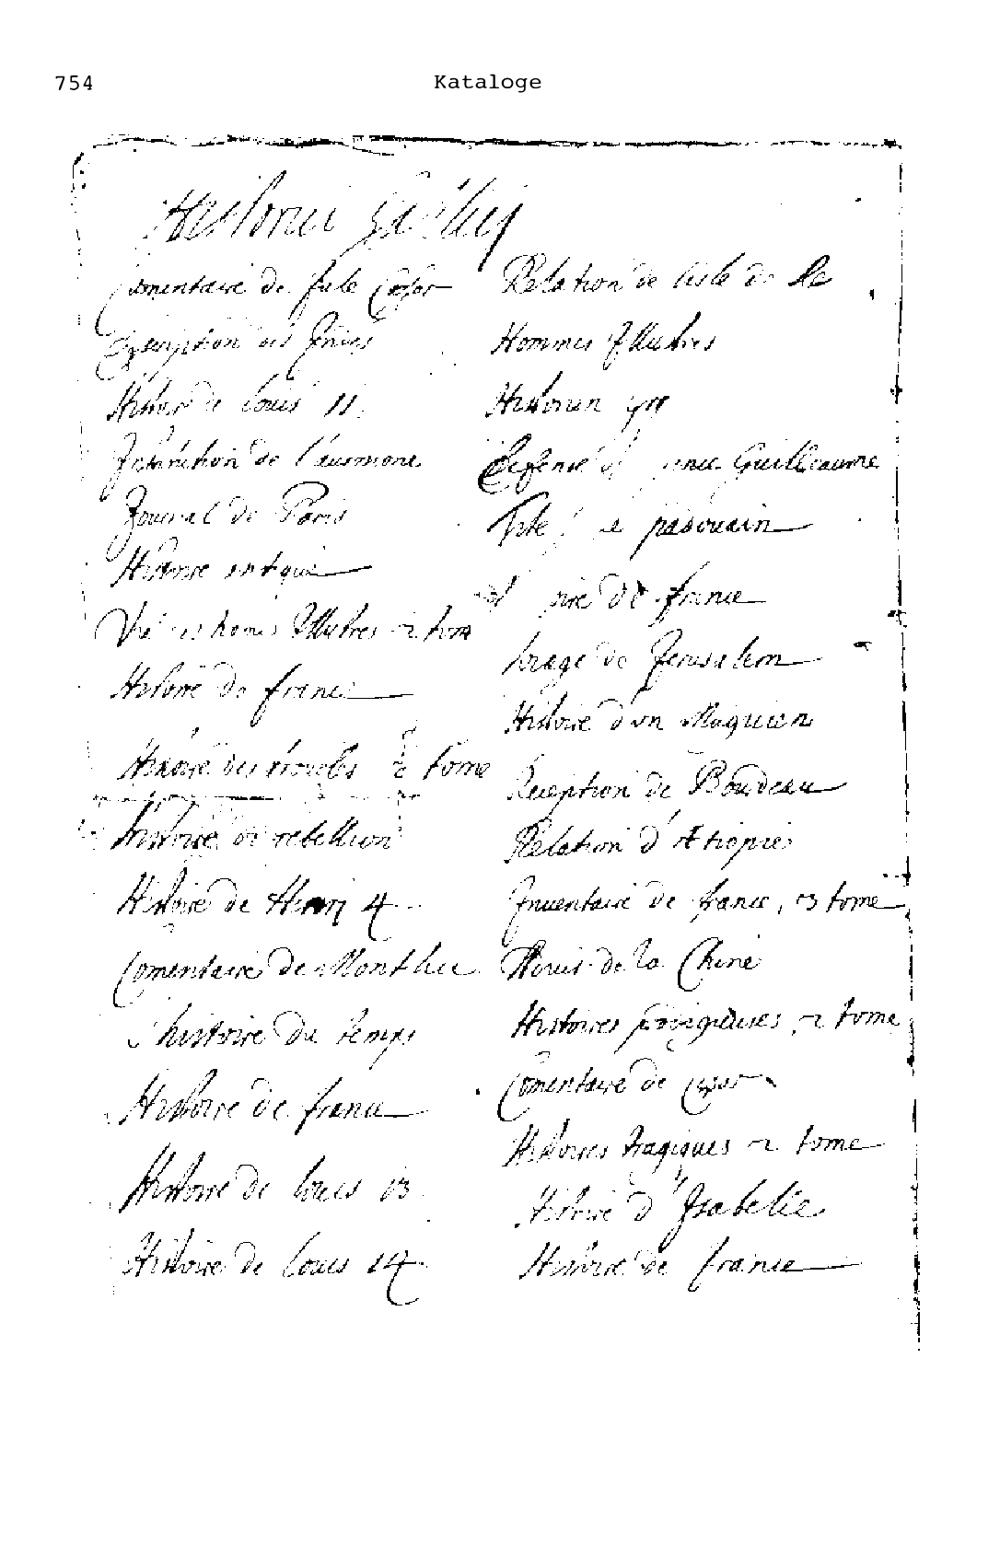 754 Kataloge
Historici Gallici
Comentaire de Jule Cesar
des
Histoire de Louis 11
de l'ausmone
Journal de Paris
Histoire antique
Vie homes Illustres 2 tom
Histoire de france
Histoire des troubles 2 tome
histoire de rebellion
Histoire de Henri 4
Comentaire de Montluc
l'histoire du temps
Histoire de france
Histoire de louis 13
Histoire de louis 14
Relation de lisle de Re
Hommes Illustres
Historien
Defense Guilleaume
padouain
de france
de Jerusalem
Histoire d'un Magicien
Reception de Bourdeau
Relation d'Etiopie
Inuentaire de france, 3 tome
de la Chine
Histoires prodigieuses, 2 tome
Comentaire de Cesar
Histoires tragiques 2 tome
Histoire d'Isabelle
Histoire de france